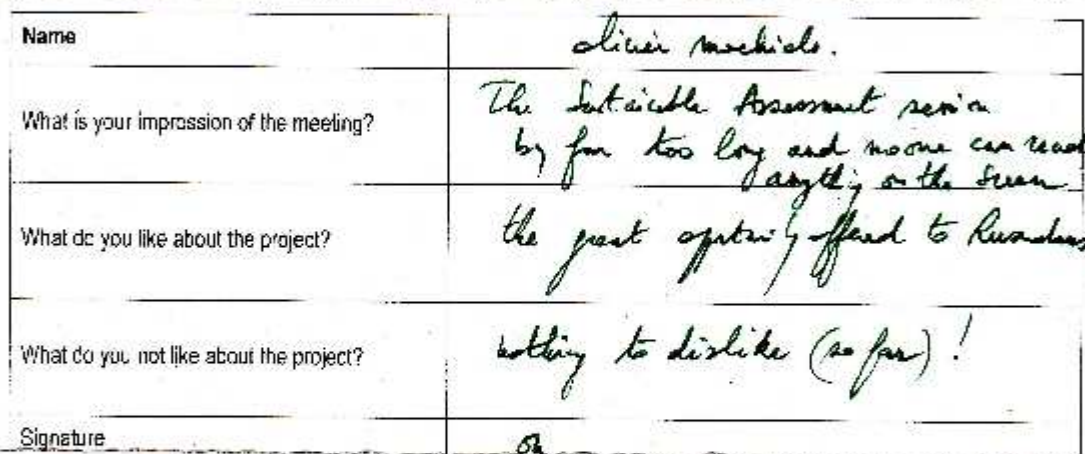 Name
olivier
What is your impression of the meeting?
The Sustainable Assessment session
by far too long and noone can read
anything on the screen
What do you like about the project?
the great opportunity offered to Rwandans
What do you not like about the project?
nothing to dislike (so far) !
Signature